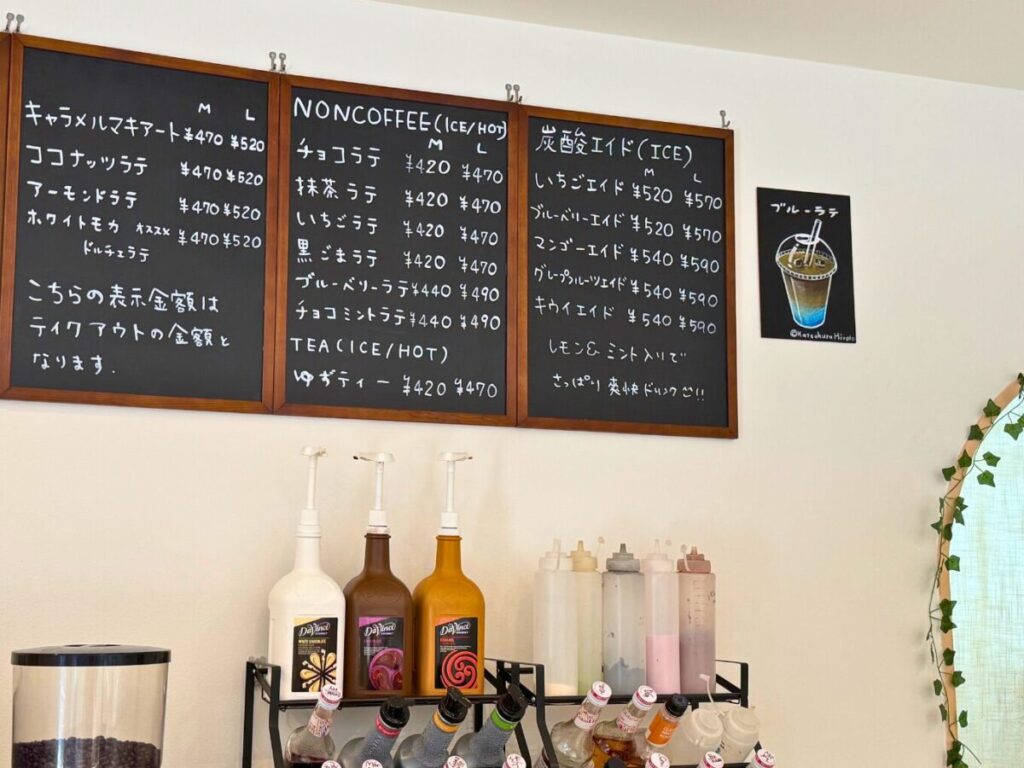 M L
キャラメルマキアート ¥470 ¥520
ココナッツラテ ¥470 ¥520
アーモンドラテ ¥470 ¥520
ホワイトモカ オススメ ¥470 ¥520
ドルチェラテ
こちらの表示金額は
テイクアウトの金額と
なります.
NONCOFFEE(ICE/HOT)
M L
チョコラテ ¥420 ¥470
抹茶ラテ ¥420 ¥470
いちごラテ ¥420 ¥470
黒ごまラテ ¥420 ¥470
ブルーベリーラテ ¥440 ¥490
チョコミントラテ ¥440 ¥490
TEA(ICE/HOT)
ゆずティー ¥420 ¥470
炭酸エイド(ICE)
M L
いちごエイド ¥520 ¥570
ブルーベリーエイド ¥520 ¥570
マンゴーエイド ¥540 ¥590
グレープフルーツエイド ¥540 ¥590
キウイエイド ¥540 ¥590
レモン&ミント入りで
さっぱり爽快ドリンク!!
ブルーラテ
DaVinci
WHITE CHOCOLATE
DaVinci
DaVinci